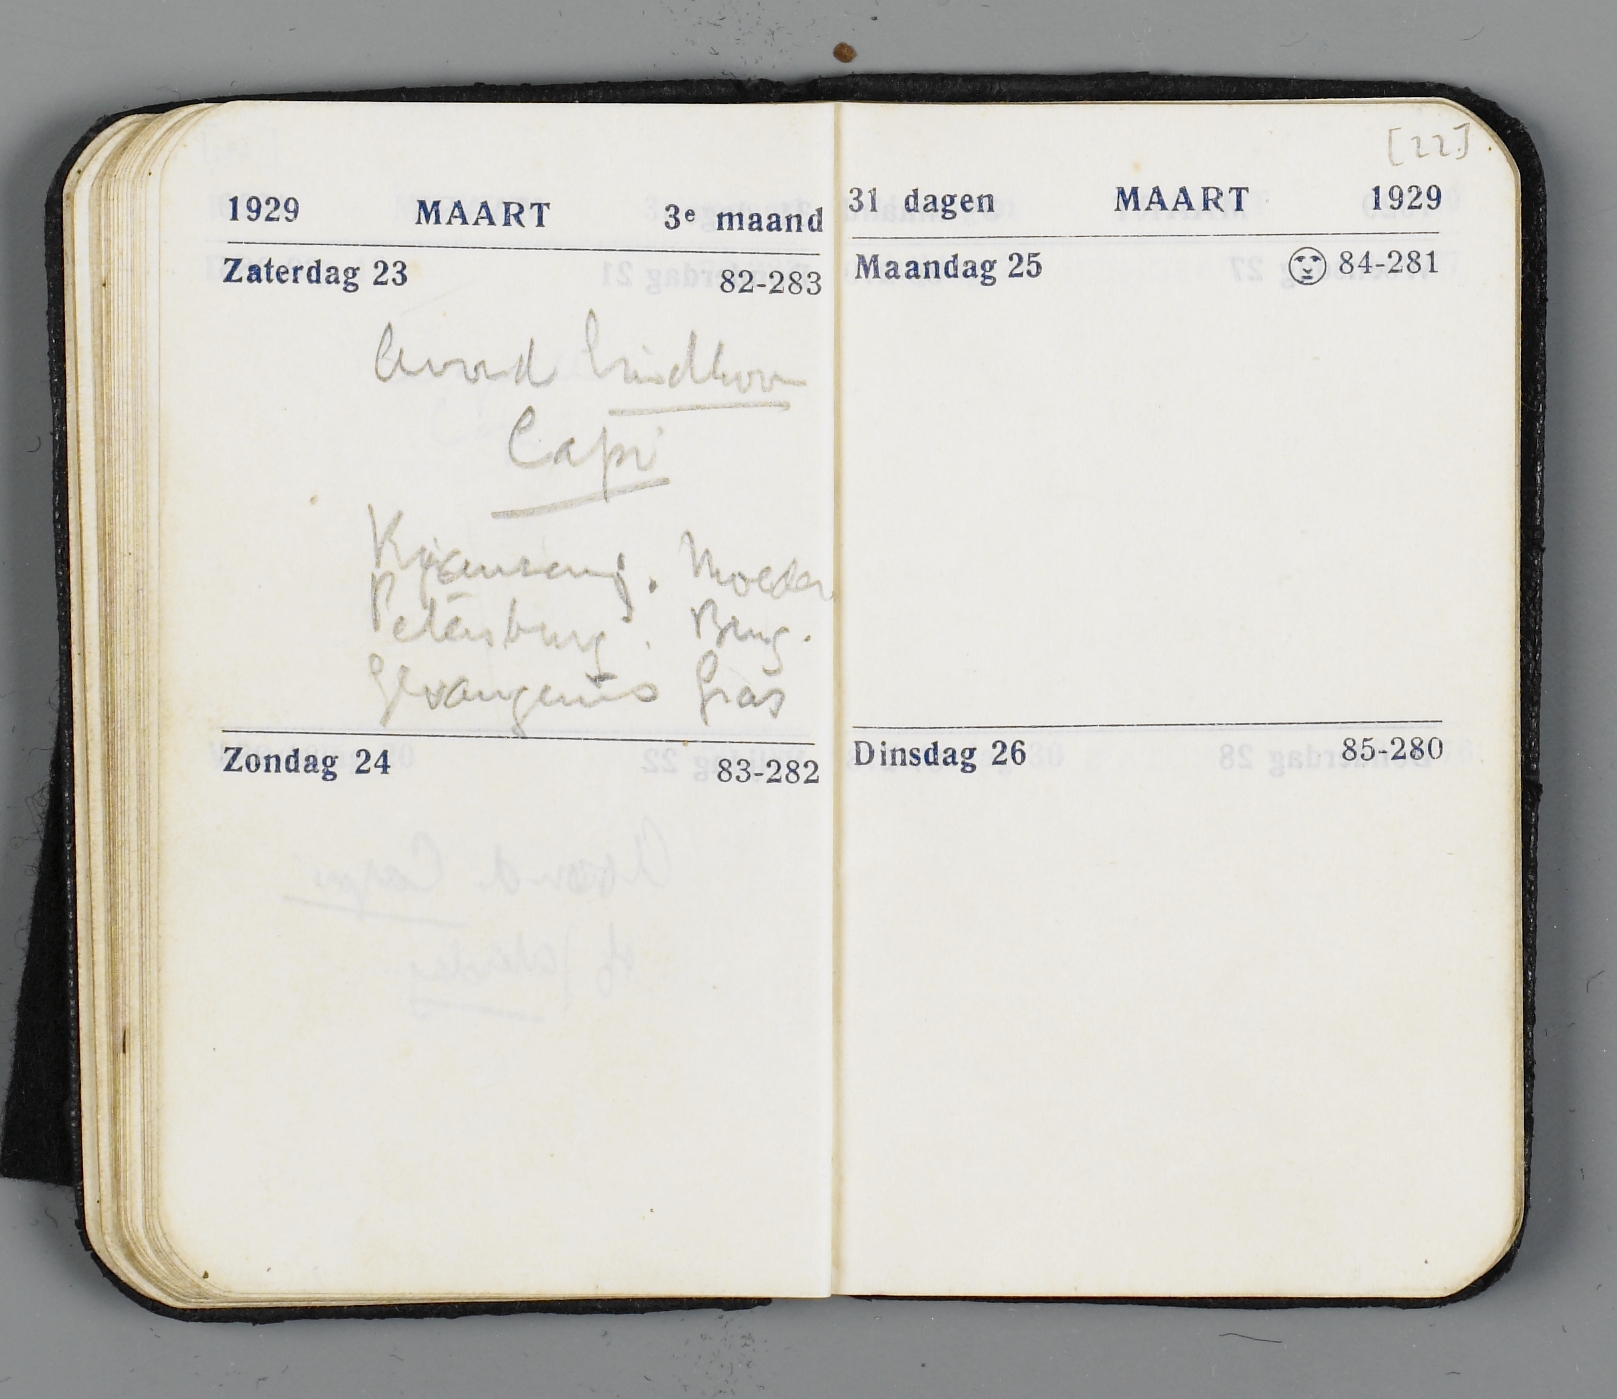 1929 MAART 3e maand
Zaterdag 23 82-283
Avond Eindhoven
Capi
Petersburg. Brug.
Gevangenis Gras
Moeder
Zondag 24 83-282
[22]
31 dagen MAART 1929
Maandag 25 84-281
Dinsdag 26 85-280